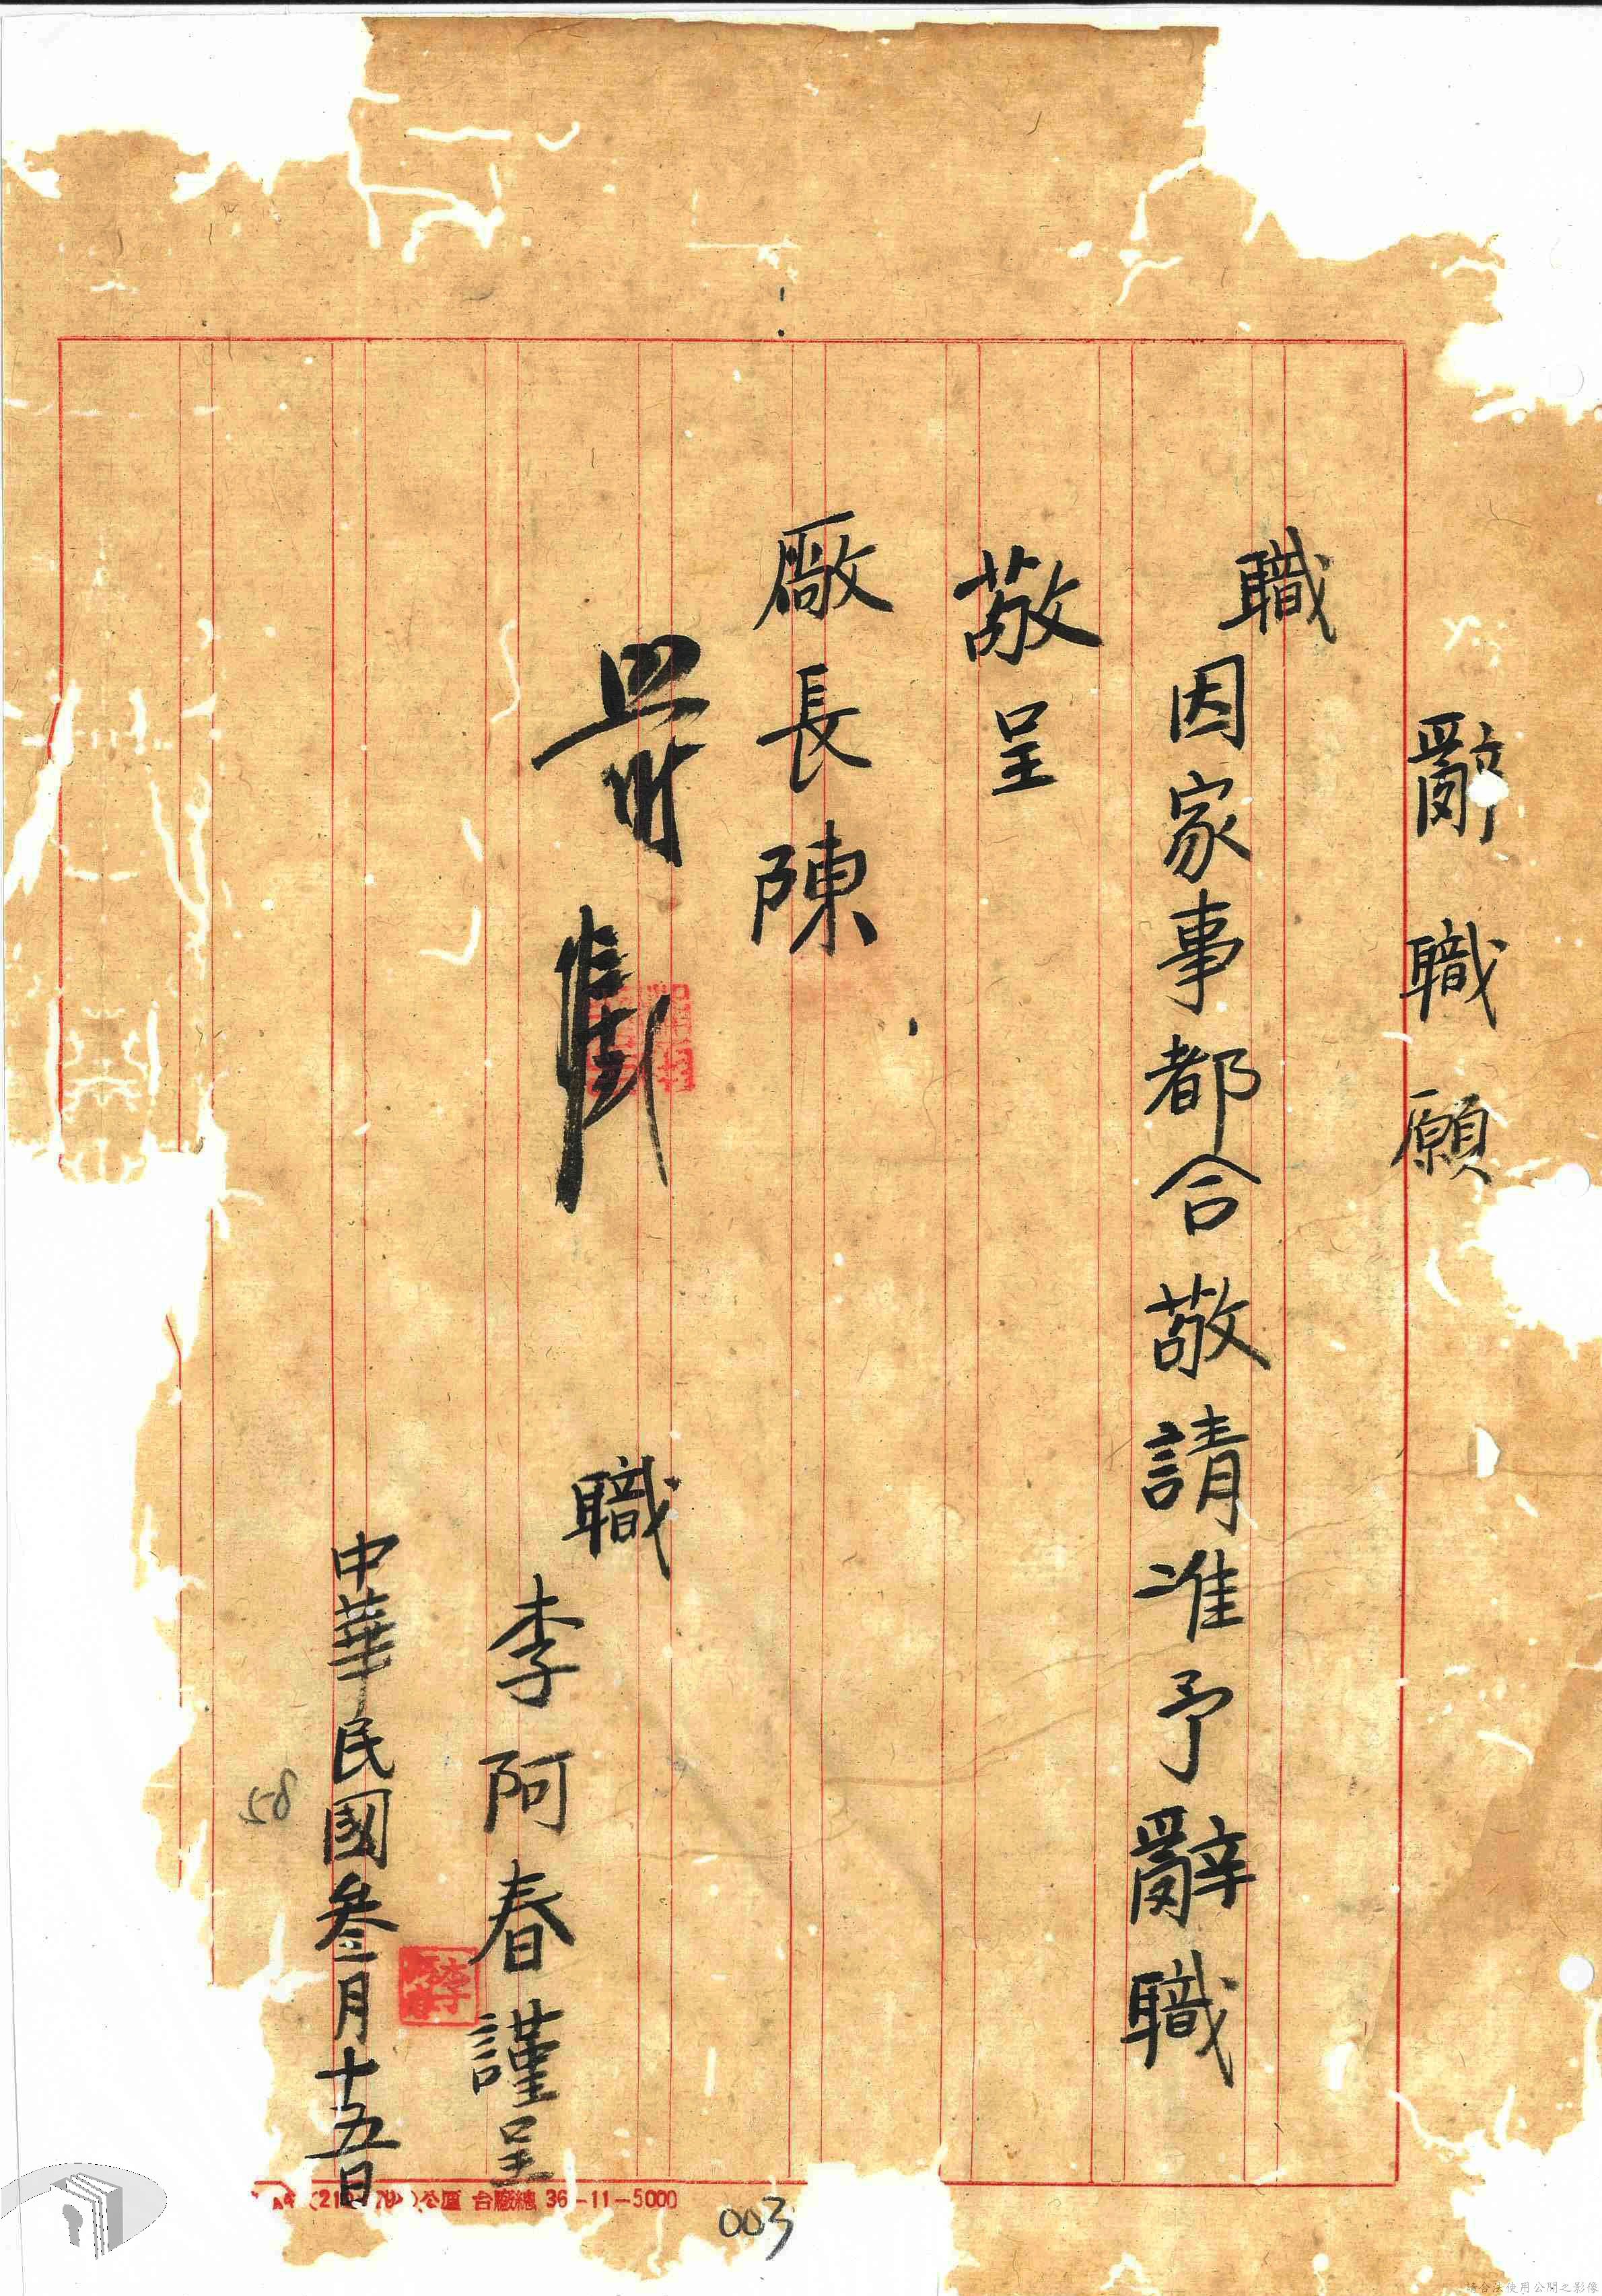 辭職願
職
因家事都合敬請准予辭職
敬呈
廠長陳
職
李阿春謹呈
中華民國叁月十五日
58
公厘 台廠總 36-11-5000
003
請合法使用公開之影像